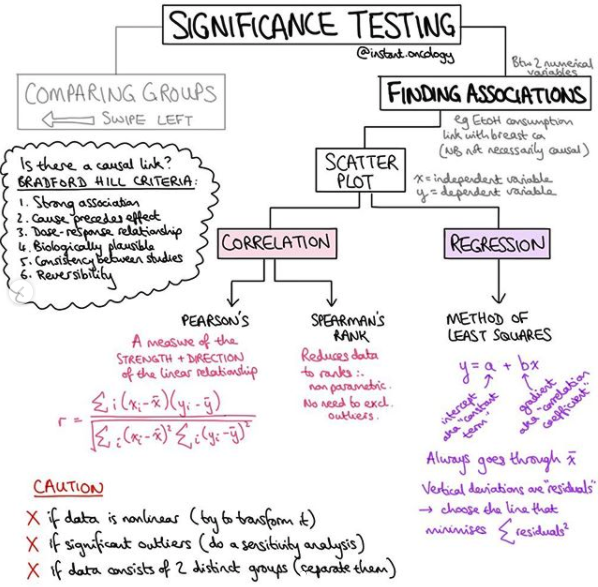 SIGNIFICANCE TESTING
@instant.oncology
COMPARING GROUPS
SWIPE LEFT
Btw 2 numerical
variables
FINDING ASSOCIATIONS
eg EtOH consumption
link with breast ca
(NB not necessarily causal)
Is there a causal link?
BRADFORD HILL CRITERIA:
1. Strong association
2. Cause precedes effect
3. Dose-response relationship
4. Biologically plausible
5. Consistency between studies
6. Reversibility
SCATTER
PLOT
x = independent variable
y = dependent variable
CORRELATION
REGRESSION
PEARSON'S
A measure of the
STRENGTH + DIRECTION
of the linear relationship
r = Σi(xi-x̄)(yi-ȳ) / √Σi(xi-x̄)² Σi(yi-ȳ)²
SPEARMAN'S
RANK
Reduces data
to ranks ∴
non parametric.
No need to excl.
outliers.
METHOD OF
LEAST SQUARES
y = a + bx
intercept
aka "constant
term"
gradient
aka "correlation
coefficient"
Always goes through x̄
Vertical deviations are "residuals"
→ choose the line that
minimises Σ residuals²
CAUTION
X if data is nonlinear (try to transform it)
X if significant outliers (do a sensitivity analysis)
X if data consists of 2 distinct groups (separate them)